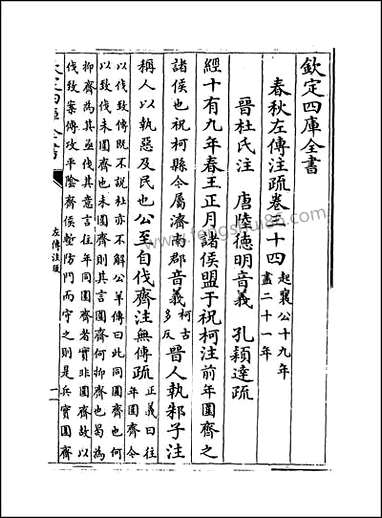 欽定四庫全書
春秋左傳注疏卷三十四
起襄公十九年
盡二十一年
晉杜氏注 唐陸德明音義 孔穎達疏
經十有九年春王正月諸侯盟于祝柯注前年圍齊之
諸侯也祝柯縣今屬濟南郡音義柯古多反晉人執邾子注
稱人以執惡及民也公至自伐齊注無傳疏正義曰往年圍齊今
以伐致傳既不説杜亦不解公羊傳曰此同圍齊也何
以致伐未圍齊也未圍齊則其言圍齊何抑齊也曷為
抑齊為其亟伐其意言往年同圍齊者實非圍齊故以
伐致案傳攻平陰齊侯塹防門而守之則是兵實圍齊
左傳注疏
一
www.fengshui86.com